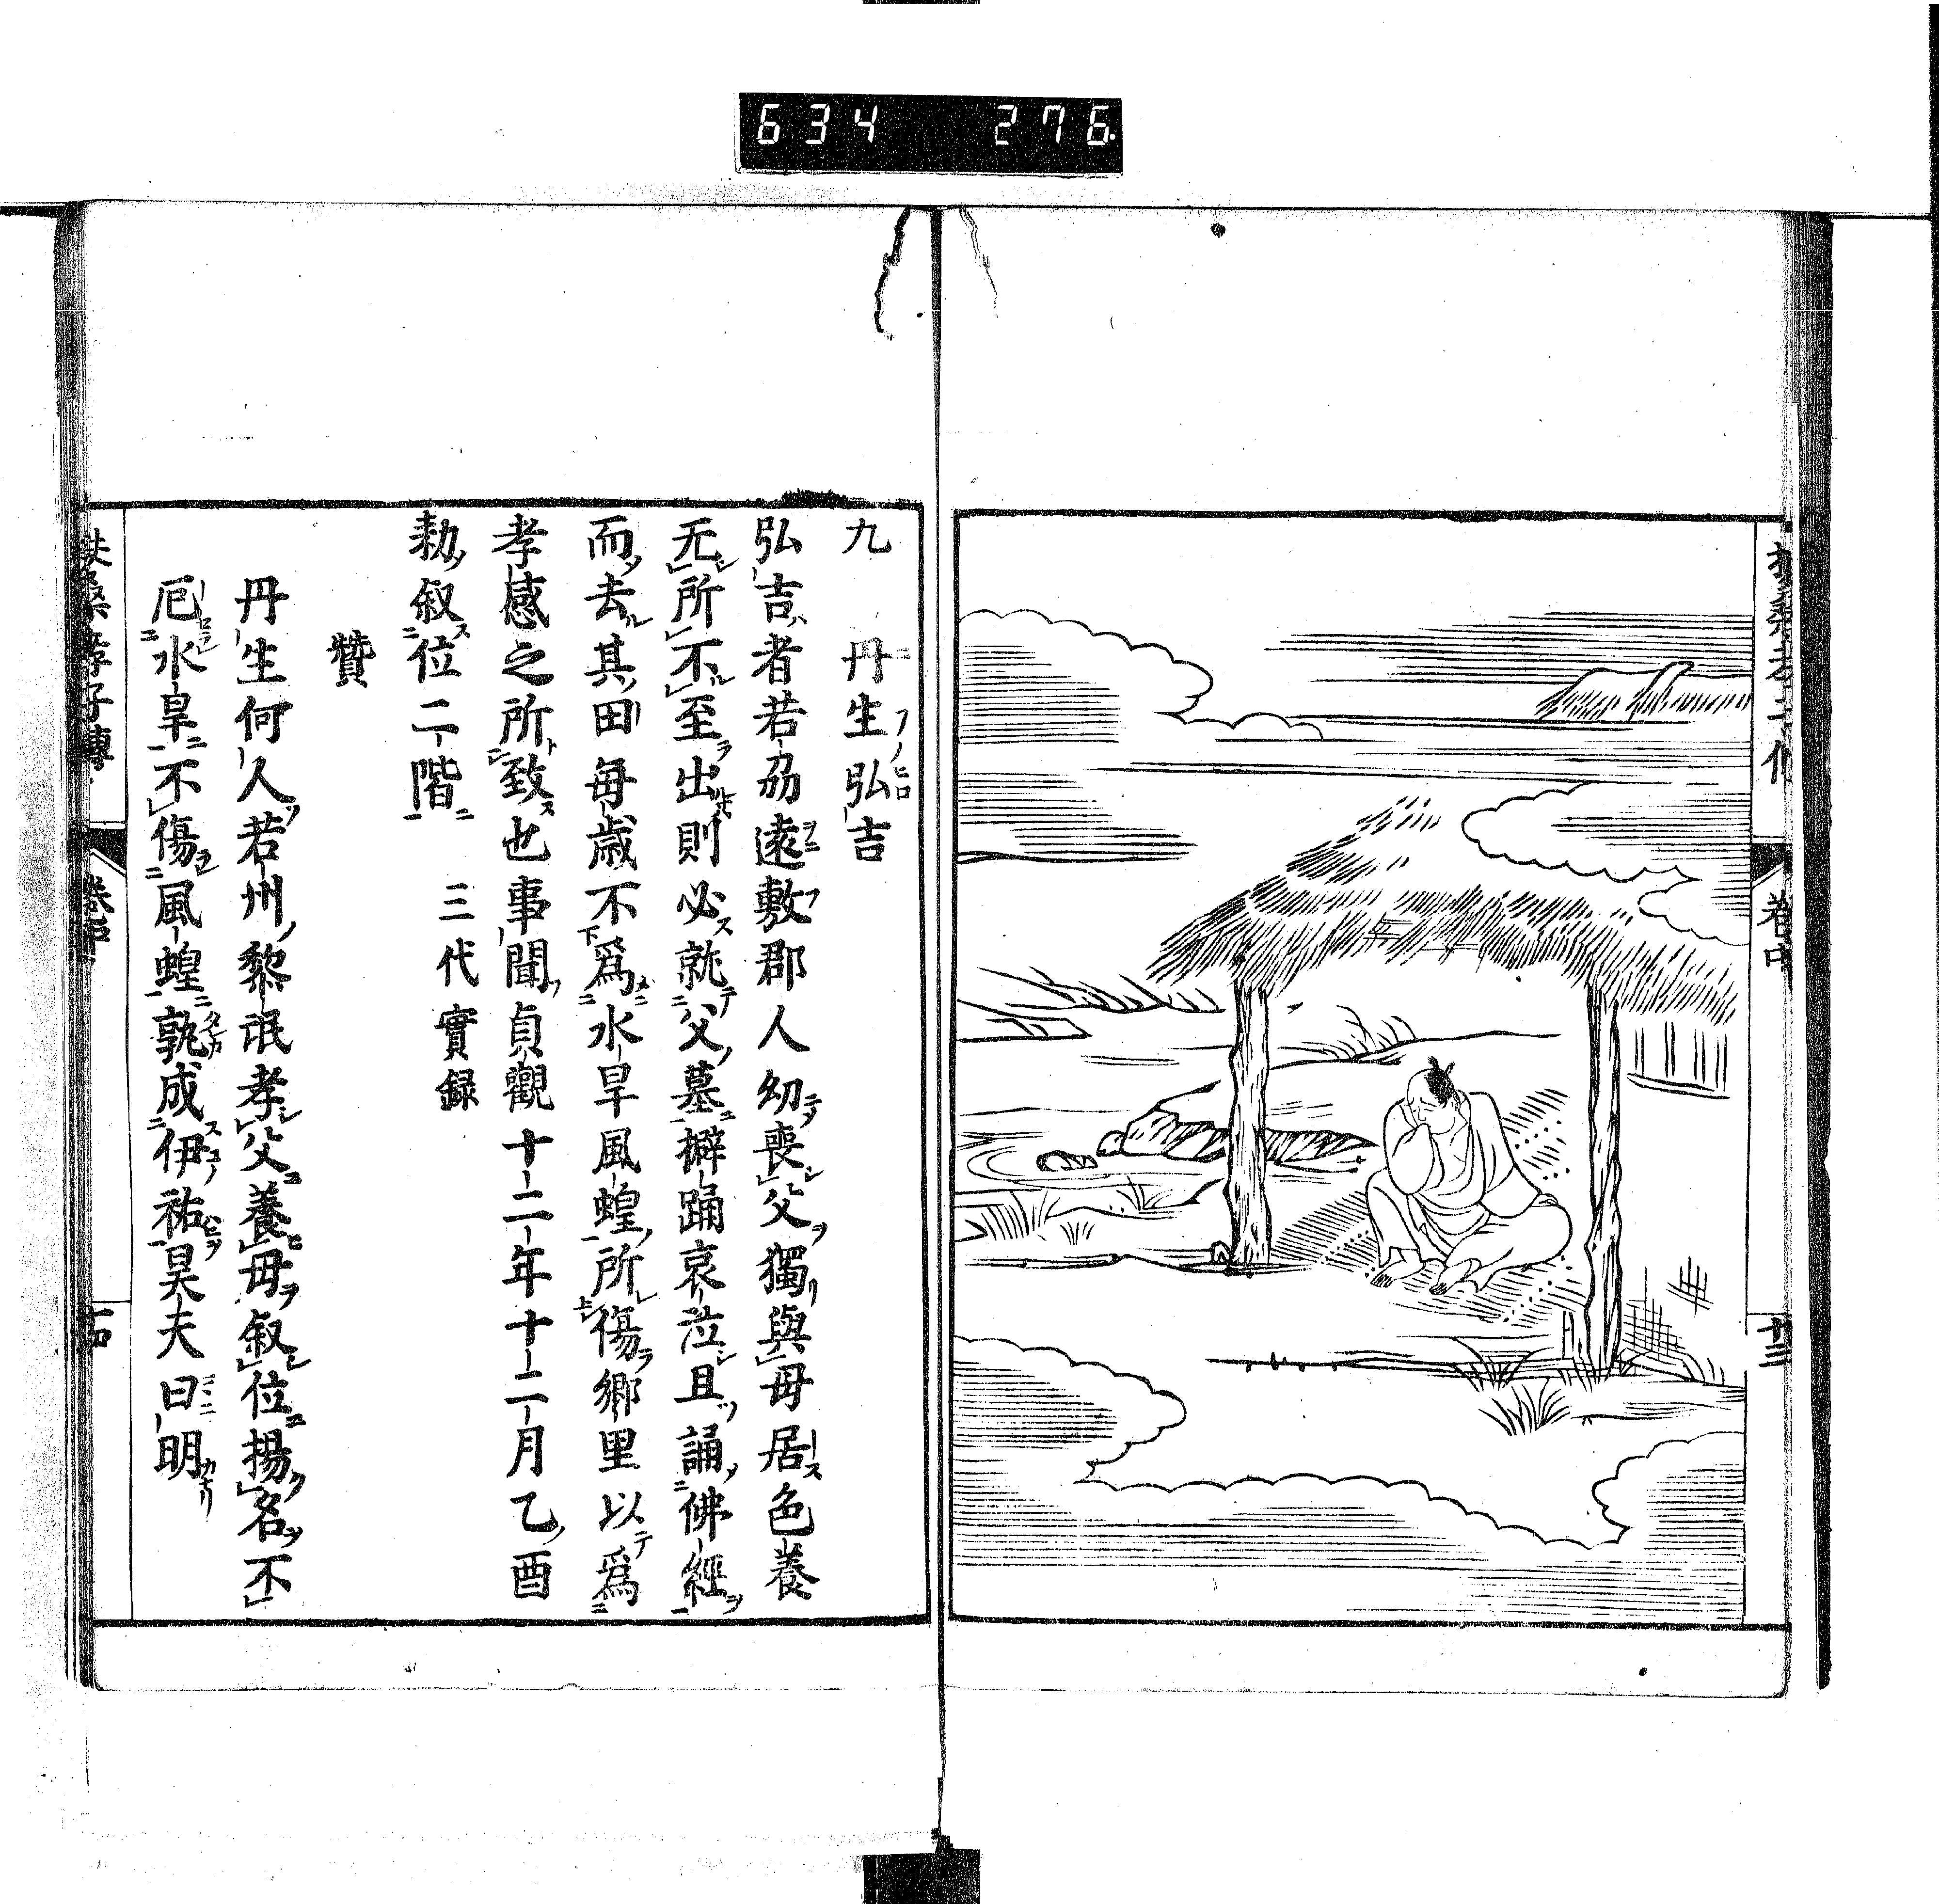 634 276
卷中
十三
九 丹生弘吉
弘吉者若刕遠敷郡人幼喪父獨與母居色養
无所不至出則必就父墓擗踊哀泣且誦佛經
而去其田每歲不爲水旱風蝗所傷鄉里以爲
孝感之所致也事聞貞觀十二年十二月乙酉
勅叙位二階 三代實録
贊
丹生何人若州黎氓孝父養母叙位揚名不
厄水旱不傷風蝗孰成伊祐昊天曰明
扶桑孝子傳
卷中